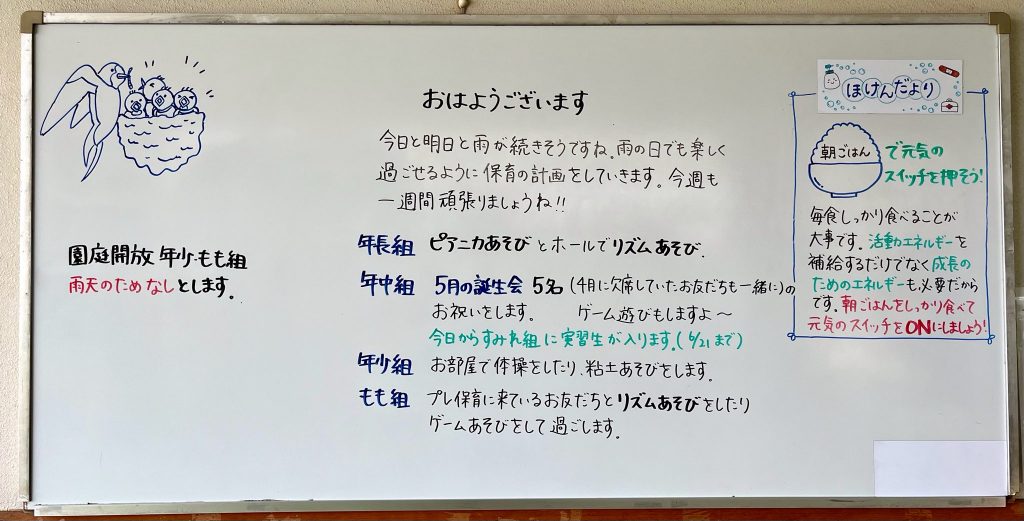 おはようございます
今日と明日と雨が続きそうですね。雨の日でも楽しく
過ごせるように保育の計画をしていきます。今週も
一週間頑張りましょうね!!
園庭開放 年少・もも組
雨天のためなしとします。
年長組 ピアニカあそびとホールでリズムあそび。
年中組 5月の誕生会 5名 (4月に欠席していたお友だちも一緒に)の
お祝いをします。 ゲーム遊びもしますよ～
今日からすみれ組に実習生が入ります。(6/21まで)
年少組 お部屋で体操をしたり、粘土あそびをします。
もも組 プレ保育に来ているお友だちとリズムあそびをしたり
ゲームあそびをして過ごします。
ほけんだより
朝ごはん で元気の
スイッチを押そう!
毎食しっかり食べることが
大事です。活動エネルギーを
補給するだけでなく成長の
ためのエネルギーも必要だから
です。朝ごはんをしっかり食べて
元気のスイッチをONにしましょう!